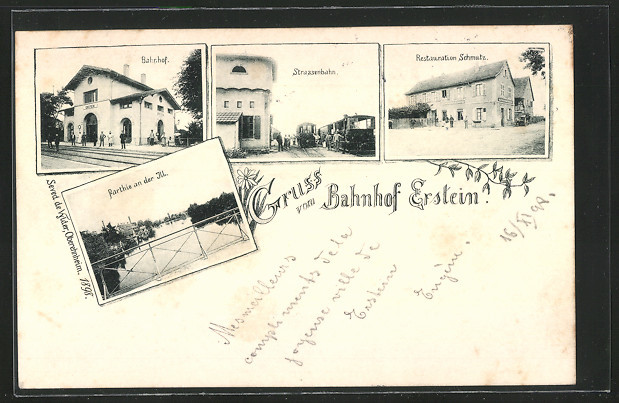 Bahnhof.
Strassenbahn.
Restauration Schmutz.
Parthie an der Ill.
Gruss
vom Bahnhof Erstein.
Oberehnheim. 1898.
16/XI 98.
Mes meilleurs
compliments de la
joyeuse ville de
Erstein
Eugène.